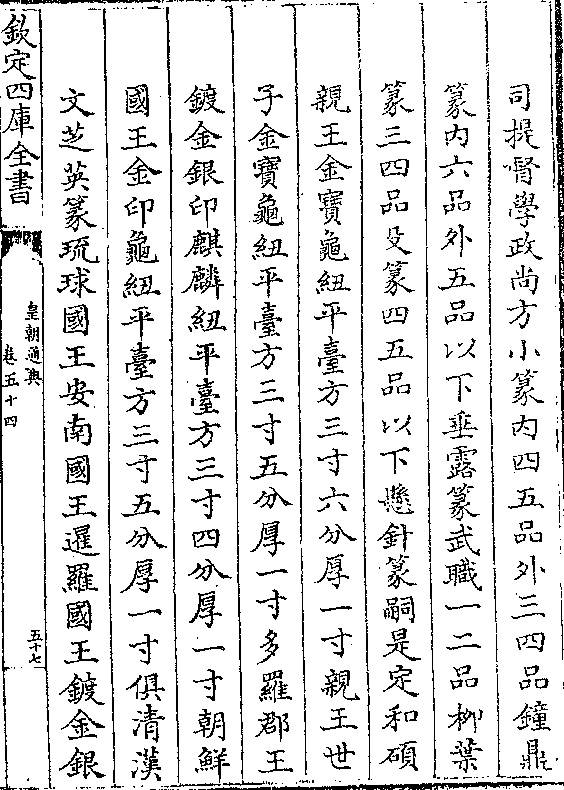 司提督學政尚方小篆内四五品外三四品鐘鼎
篆内六品外五品以下垂露篆武職一二品柳葉
篆三四品殳篆四五品以下懸針篆嗣是定和碩
親王金寶龜紐平臺方三寸六分厚一寸親王世
子金寶龜紐平臺方三寸五分厚一寸多羅郡王
鍍金銀印麒麟紐平臺方三寸四分厚一寸朝鮮
國王金印龜紐平臺方三寸五分厚一寸俱清漢
文芝英篆琉球國王安南國王暹羅國王鍍金銀
欽定四庫全書
皇朝通典
卷五十四
五十七